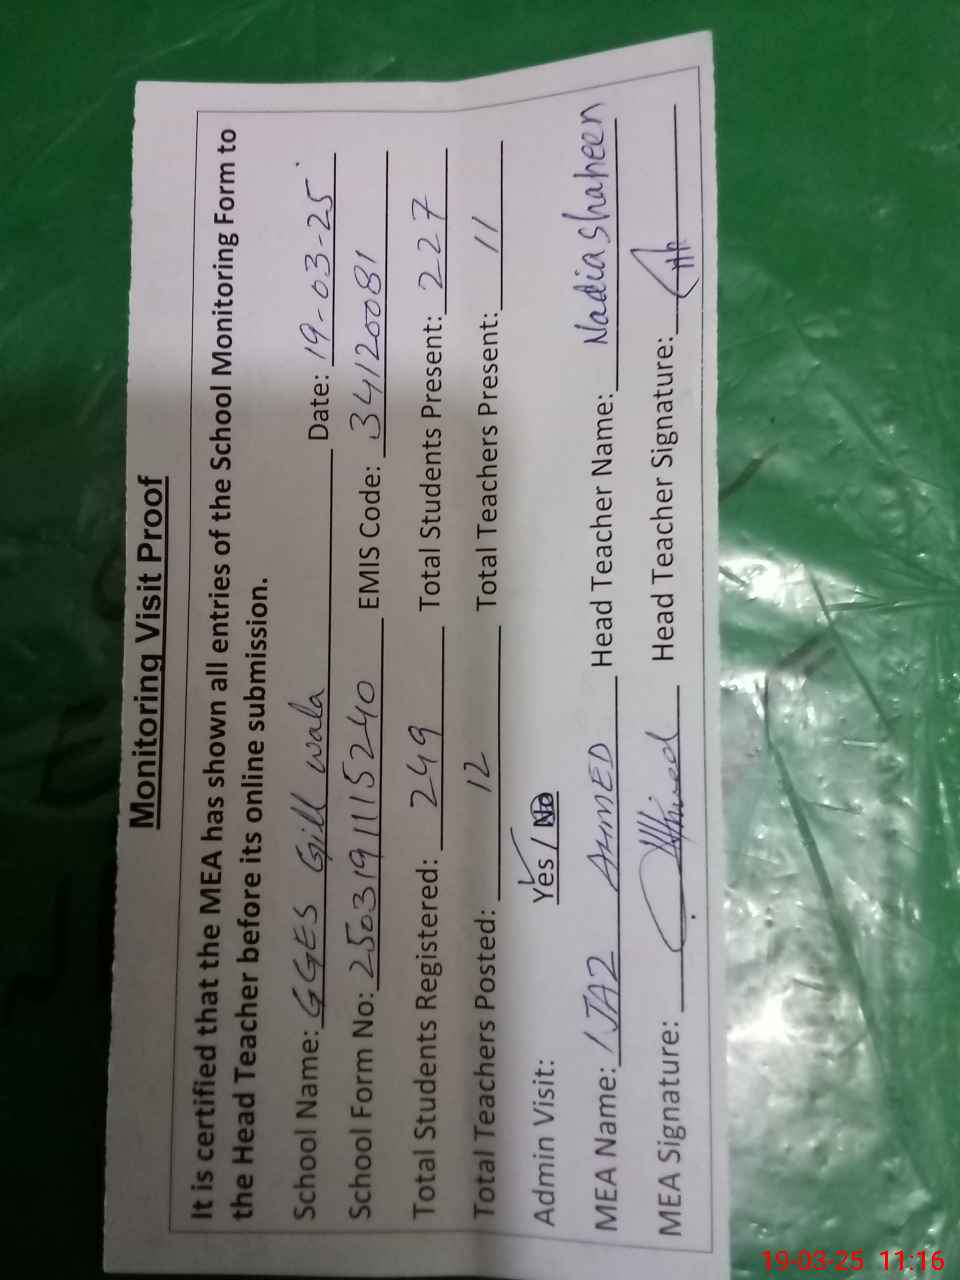 Monitoring Visit Proof
It is certified that the MEA has shown all entries of the School Monitoring Form to
the Head Teacher before its online submission.
School Name: GGES Gill wala Date: 19-03-25
School Form No: 2503191115240 EMIS Code: 34120081
Total Students Registered: 249 Total Students Present: 227
Total Teachers Posted: 12 Total Teachers Present: 11
Admin Visit: Yes / No
MEA Name: IJAZ AHMED Head Teacher Name: Nadia Shaheen
MEA Signature: Head Teacher Signature:
19-03-25 11:16